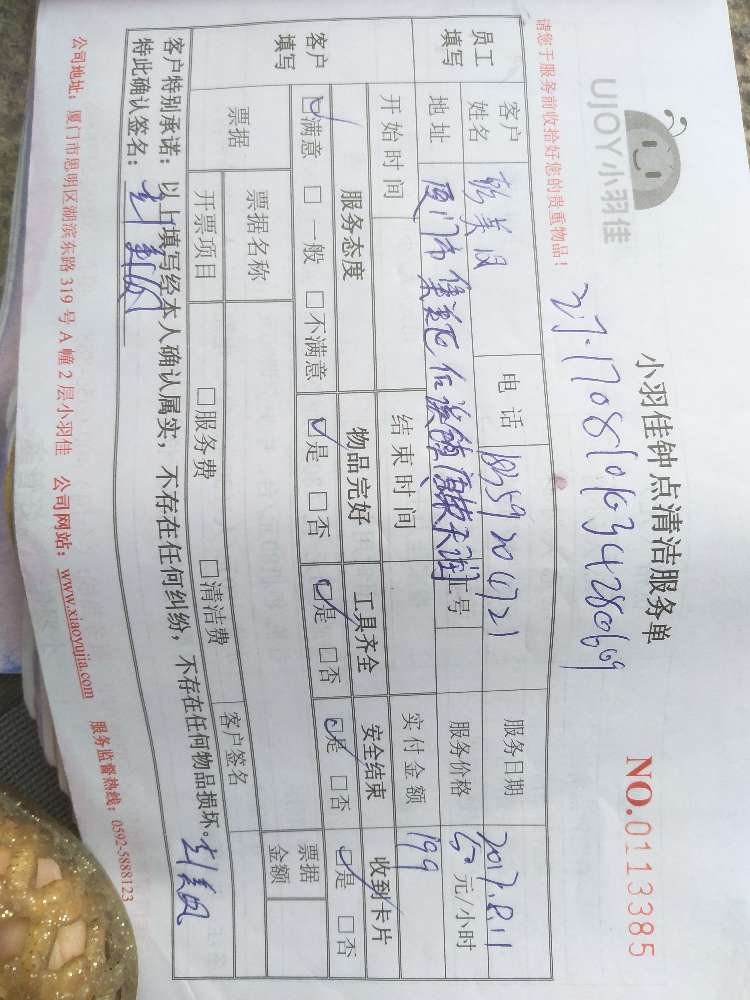 UJOY小羽佳
小羽佳钟点清洁服务单
NO.0113385
请您于服务前收拾好您的贵重物品！
员工填写
客户姓名
电话
服务日期 2017.8.11
地址 厦门市集美区
工号
服务价格 50 元/小时
开始时间
结束时间
实付金额 199
客户填写
服务态度 物品完好 工具齐全 安全结束 收到卡片
☑满意 □一般 □不满意 ☑是 □否 ☑是 □否 ☑是 □否 ☑是 □否
票据
票据名称
票据金额
开票项目 □服务费 □清洁费 客户签名
客户特别承诺：以上填写经本人确认属实，不存在任何纠纷，不存在任何物品损坏。
特此确认签名：
公司地址：厦门市思明区湖滨东路 319 号 A 幢 2 层小羽佳 公司网站：www.xiaoyujia.com 服务监督热线：0592-5888123